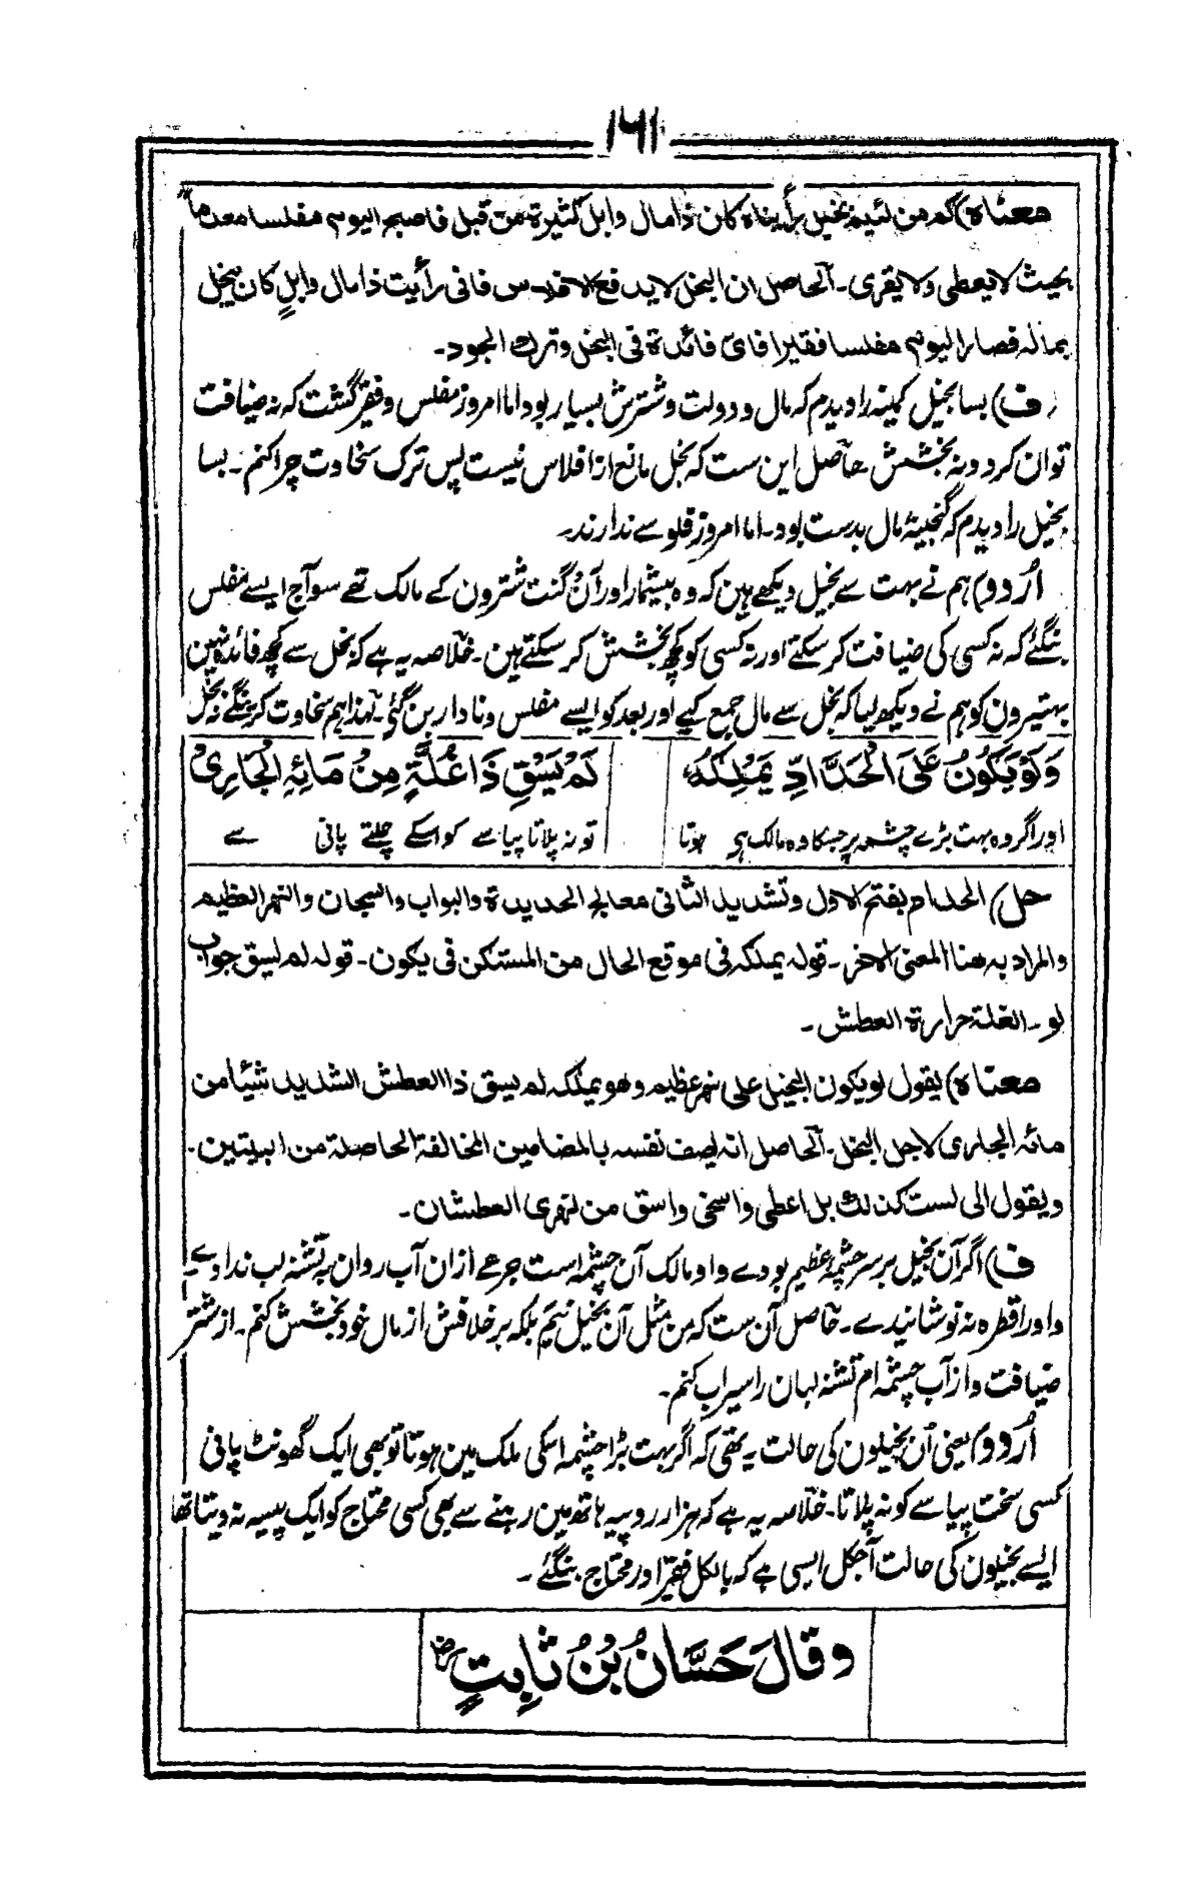 ۱۶۱
معناہ) کم من لئیم بخیل رأیناہ کان ذا مال وابل کثیرۃ من قبل فاصبح الیوم مفلسا معدما
بحیث لا یعطی ولا یقری۔ الحاصل ان البخل لا یدفع الافلاس فانی رأیت ذا مال وابلٍ کان یبخل
بمالہ فصار الیوم مفلسا فقیرا فای فائدۃ فی البخل وترک الجود۔
(ف) بسا بخیل کمینہ را دیدم کہ مال و دولت و شترش بسیار بود اما امروز مفلس و فقیر گشت کہ نہ ضیافت
توان کرد و نہ بخشش حاصل این ست کہ بخل مانع از افلاس نیست پس ترک سخاوت چرا کنم۔ بسا
بخیل را دیدم کہ گنجینۂ مال بدست بود۔ اما امروز فلوسے ندارند۔
اُردو) ہم نے بہت سے بخیل دیکھے ہین کہ وہ بیشمار اور اَن گنت شترون کے مالک تھے سو آج ایسے مفلس
بنگئے کہ نہ کسی کی ضیافت کر سکتے اور نہ کسی کو کچھ بخشش کر سکتے ہین۔ خلاصہ یہ ہے کہ بخل سے کچھ فائدہ نہین
بہتیرون کو ہم نے دیکھ لیا کہ بخل سے مال جمع کیے اور بعد کو ایسے مفلس و نادار بن گئے۔ لہذا ہم سخاوت کرینگے نہ بخل
وَلَوْ يَكُوْنُ عَلَى الْحَدَّادِ يَمْلِكُهٗ لَمْ يَسْقِ ذَا غُلَّةٍ مِنْ مَائِهِ الْجَارِيْ
اور اگر وہ بہت بڑے چشمہ پر جسکا وہ مالک ہی ہوتا تو نہ پلاتا پیاسے کو اسکے چلتے پانی سے
حل) الحداد بفتح الاول وتشدید الثانی معالج الحدیدۃ والبواب والسجان والنہر العظیم
والمراد بہ ھنا المعنی الاخر۔ قولہ یملکہ فی موقع الحال من المستکن فی یکون۔ قولہ لم یسق جواب
لو۔ الغلۃ حرارۃ العطش۔
معناہ) یقول لو یکون البخیل علی نہر عظیم وھو یملکہ لم یسق ذا العطش الشدید شیئا من
مائہ الجاری لاجل البخل۔ الحاصل انہ یصف نفسہ بالمضامین المخالفۃ الحاصلۃ من البیتین۔
ویقول انی لست کذلک بل اعطی واسخی واسق من نہری العطشان۔
ف) اگر آن بخیل بر سر چشمۂ عظیم بودے و او مالک آن چشمہ است جرعے ازان آب روان بہ تشنہ لب ندادے
و اورا قطرہ نہ نوشانیدے۔ حاصل آن ست کہ من مثل آن بخیل نیم بلکہ بر خلافش از مال خود بخشش کنم۔ از شتر
ضیافت و از آب چشمہ ام تشنہ لبان را سیراب کنم۔
اُردو) یعنی اُن بخیلون کی حالت یہ تھی کہ اگر بہت بڑا چشمہ اسکی ملک مین ہوتا تو بھی ایک گھونٹ پانی
کسی سخت پیاسے کو نہ پلاتا۔ خلاصہ یہ ہے کہ ہزار روپیہ ہاتھ مین رہنے سے بھی کسی محتاج کو ایک پیسہ نہ دیتا تھا
ایسے بخیلون کی حالت آجکل ایسی ہے کہ بالکل فقیر اور محتاج بنگئے۔
وقَالَ حَسَّانُ بْنُ ثَابِتٍ رض